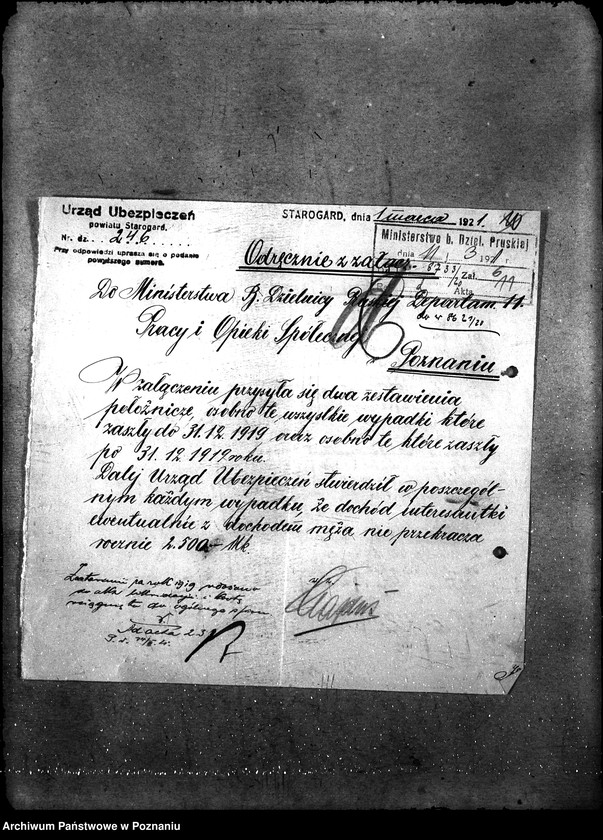 Urząd Ubezpieczeń
powiatu Starogard.
Nr. dz. . . 246 . . . . . .
Przy odpowiedzi uprasza się o podanie
powyższego numeru.
STAROGARD, dnia 1 marca 1921.
Ministerstwo b. Dziel. Pruskiej
dnia 11/3 19
6733 Zał. 6
Akta
Odręcznie z załącz.
Do Ministerstwa B. Dzielnicy Departam. 11.
Pracy i Opieki Społecznej
Poznaniu
W załączeniu przysyła się dwa zestawienia
położnicze, osobno te wszystkie wypadki które
zaszły do 31.12.1919 oraz osobno te, które zaszły
po 31.12.1919 roku.
Dalej Urząd Ubezpieczeń stwierdził w poszczegól-
nym każdym wypadku, że dochód interesantki
ewentualnie z dochodem męża nie przekracza
rocznie 2.500 Mk.
Zestawienie za rok 1919
do akt
te do ogólnego
Archiwum Państwowe w Poznaniu